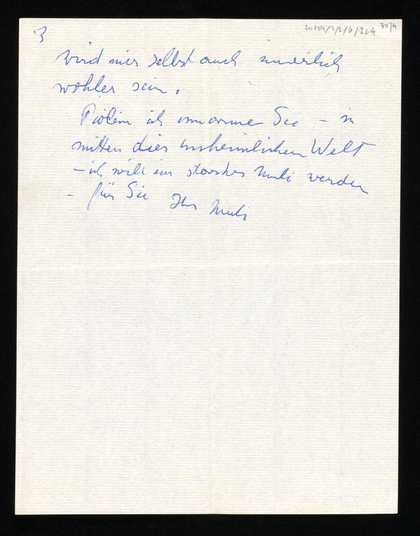 3
wird mir selbst auch innerlich
wohler sein.
ich umarme Sie – in
mitten dieser unheimlichen Welt
– ich will ein starker werden
– für Sie Ihr